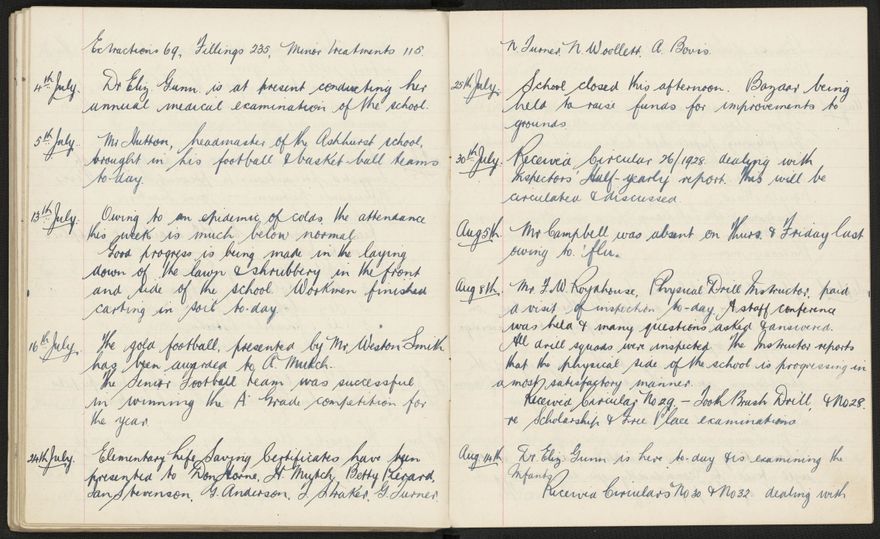 Extractions 69, Fillings 235, Minor treatments 115
4th July. Dr Eliz Gunn is at present conducting her
annual medical examination of the school.
5th July. Mr Hutton, headmaster of the Ashhurst school,
brought in his football & basket-ball teams
to-day.
13th July. Owing to an epidemic of colds the attendance
this week is much below normal
Good progress is being made in the laying
down of the lawn & shrubbery in the front
and side of the school. Workmen finished
carting in soil to-day.
16th July. The gold football, presented by Mr Weston Smith
has been awarded to A. Mutch.
The Senior Football team was successful
in winning the A Grade competition for
the year.
24th July. Elementary Life Saving Certificates have been
presented to Don Horne, H. Mutch, Betty Rigard,
Ian Stevenson, G. Anderson, J Straker, G. Turner
N Turner N Woollett. A. Bovis.
25th July. School closed this afternoon. Bazaar being
held to raise funds for improvements to
grounds
30th July. Received Circular 26/1928 dealing with
Inspectors' Half-yearly report. This will be
circulated & discussed
Aug 5th. Mr Campbell was absent on Thurs. & Friday last
owing to 'flu.
Aug 8th. Mr F. W. Roydhouse, Physical Drill Instructor, paid
a visit of inspection to-day. A staff conference
was held & many questions asked & answered.
All drill squads were inspected. The Instructor reports
that the physical side of the school is progressing in
a most satisfactory manner.
Received Circular No 29 - Tooth Brush Drill, & No 28.
re Scholarship & Free Place examinations
Aug 14th Dr Eliz Gunn is here to-day & is examining the
Infants
Received Circulars No 30 & No 32 dealing with